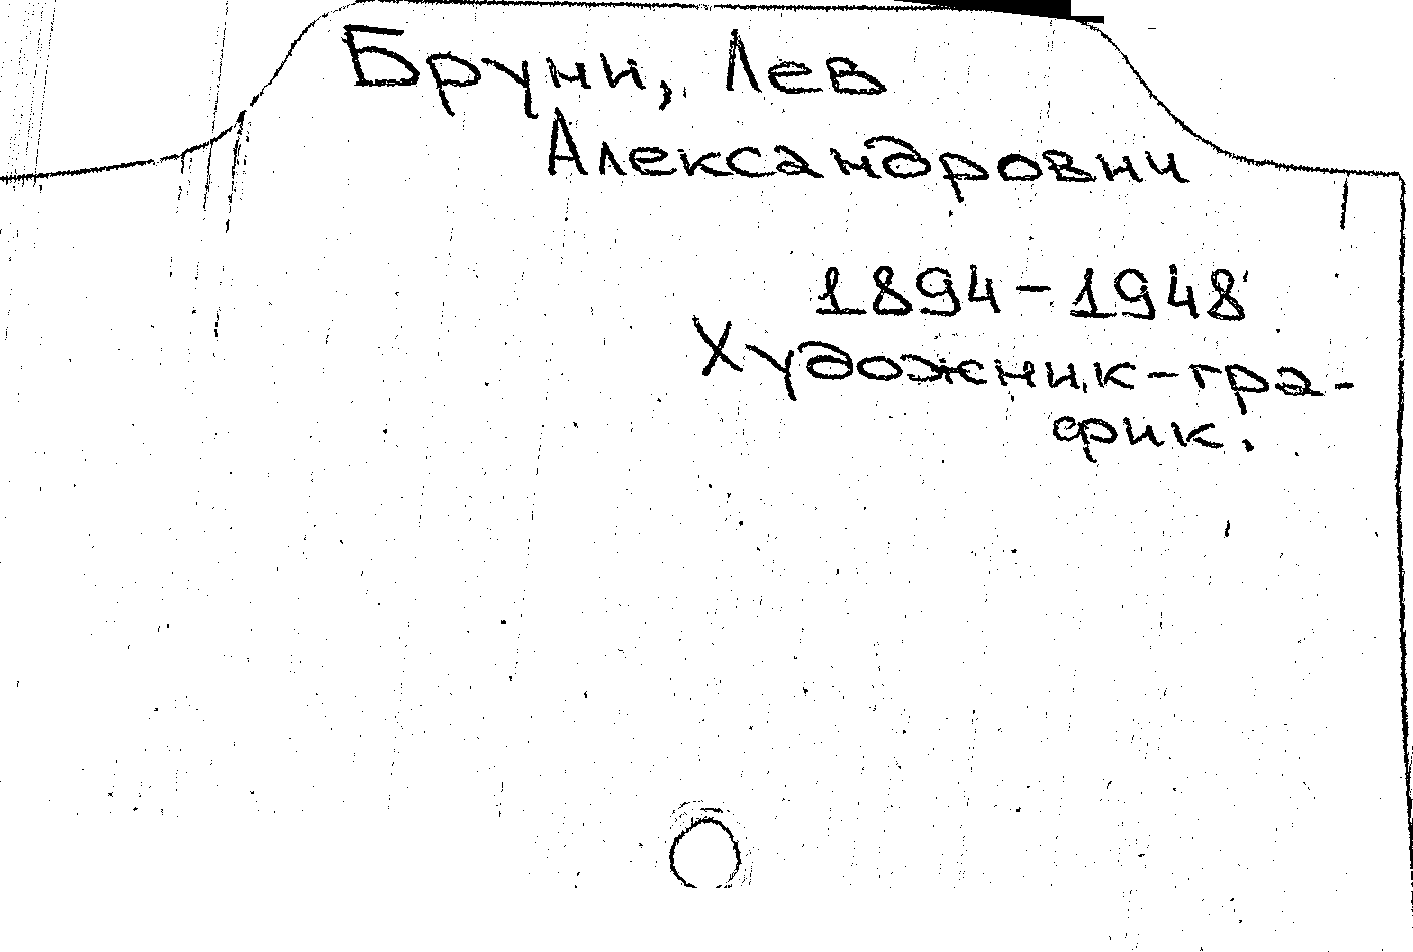 Бруни, Лев
Александрович
1894-1948
Художник-гра-
фик.